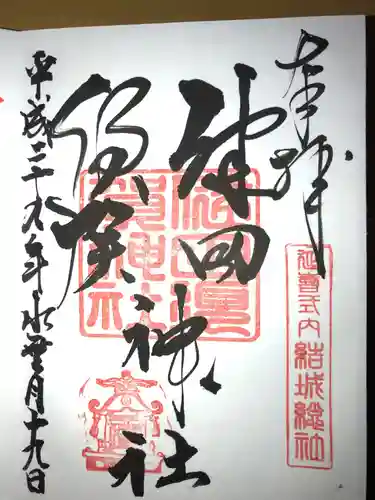 奉拝
延喜式内 結城総社
健田
須賀
神社
健田須
賀神社
平成二十九年水無月十九日